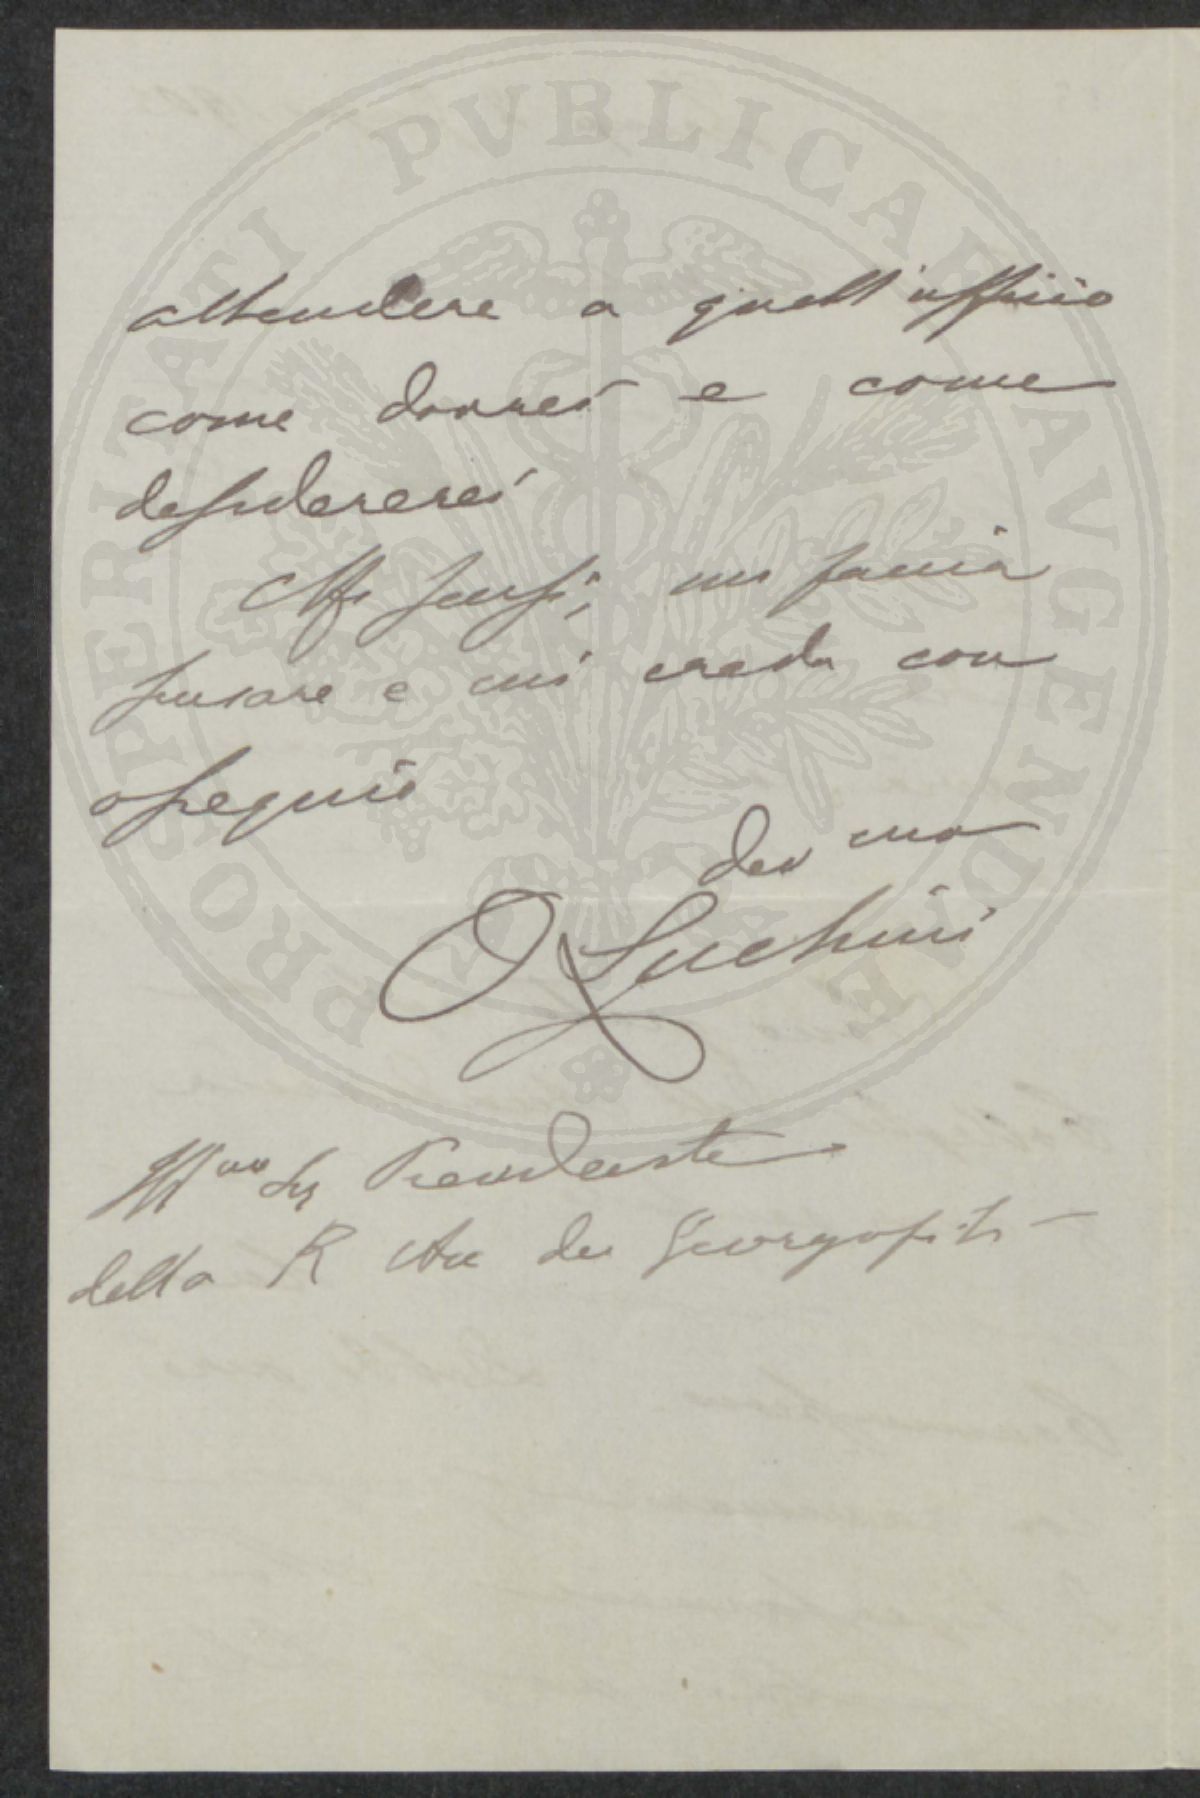 PROSPERITATI PVBLICAE AVGENDAE
attendere a quell'ufficio
come dovrei e come
desidererei
Mi scusi, mi faccia
scusare e mi creda con
ossequio
dev mo
O Luchini
Ill mo Sig Presidente
della R Acc dei Georgofili